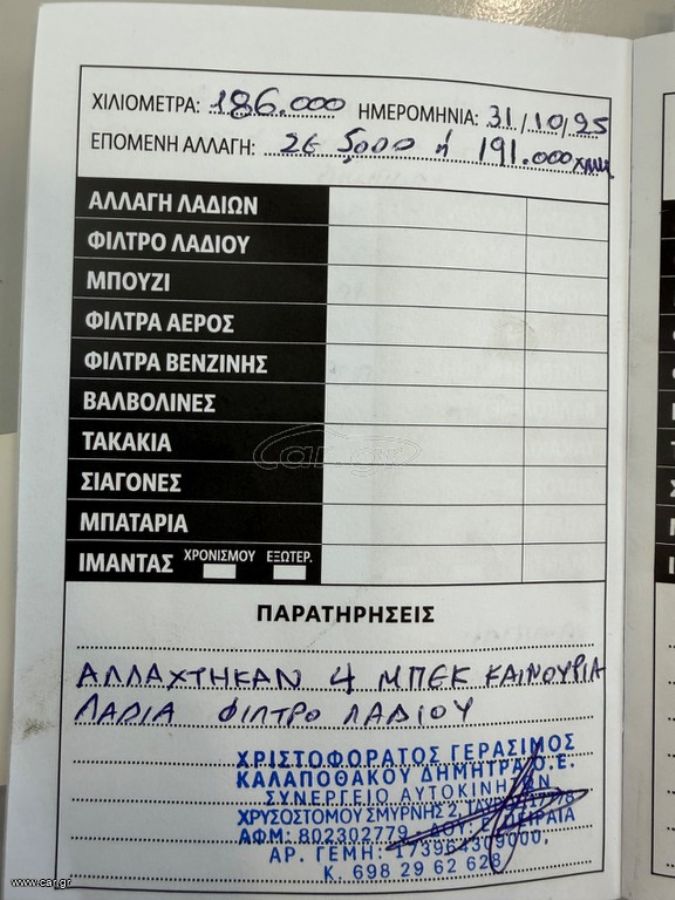 ΧΙΛΙΟΜΕΤΡΑ: 186.000 ΗΜΕΡΟΜΗΝΙΑ: 31/10/25
ΕΠΟΜΕΝΗ ΑΛΛΑΓΗ: ΣΕ 5,000 ή 191.000 χλμ
ΑΛΛΑΓΗ ΛΑΔΙΩΝ
ΦΙΛΤΡΟ ΛΑΔΙΟΥ
ΜΠΟΥΖΙ
ΦΙΛΤΡΑ ΑΕΡΟΣ
ΦΙΛΤΡΑ ΒΕΝΖΙΝΗΣ
ΒΑΛΒΟΛΙΝΕΣ
ΤΑΚΑΚΙΑ
car.gr
ΣΙΑΓΟΝΕΣ
ΜΠΑΤΑΡΙΑ
ΙΜΑΝΤΑΣ ΧΡΟΝΙΣΜΟΥ ΕΞΩΤΕΡ.
ΠΑΡΑΤΗΡΗΣΕΙΣ
ΑΛΛΑΧΤΗΚΑΝ 4 ΜΠΕΚ ΚΑΙΝΟΥΡΙΑ
ΛΑΔΙΑ ΦΙΛΤΡΟ ΛΑΔΙΟΥ
ΧΡΙΣΤΟΦΟΡΑΤΟΣ ΓΕΡΑΣΙΜΟΣ
ΚΑΛΑΠΟΘΑΚΟΥ ΔΗΜΗΤΡΑ Ο.Ε.
ΣΥΝΕΡΓΕΙΟ ΑΥΤΟΚΙΝΗΤΩΝ
ΧΡΥΣΟΣΤΟΜΟΥ ΣΜΥΡΝΗΣ 2,
ΑΦΜ: 802302779 - ΔΟΥ: ΠΕΙΡΑΙΑ
ΑΡ. ΓΕΜΗ: 173964309000,
Κ. 698 29 62 628
www.car.gr